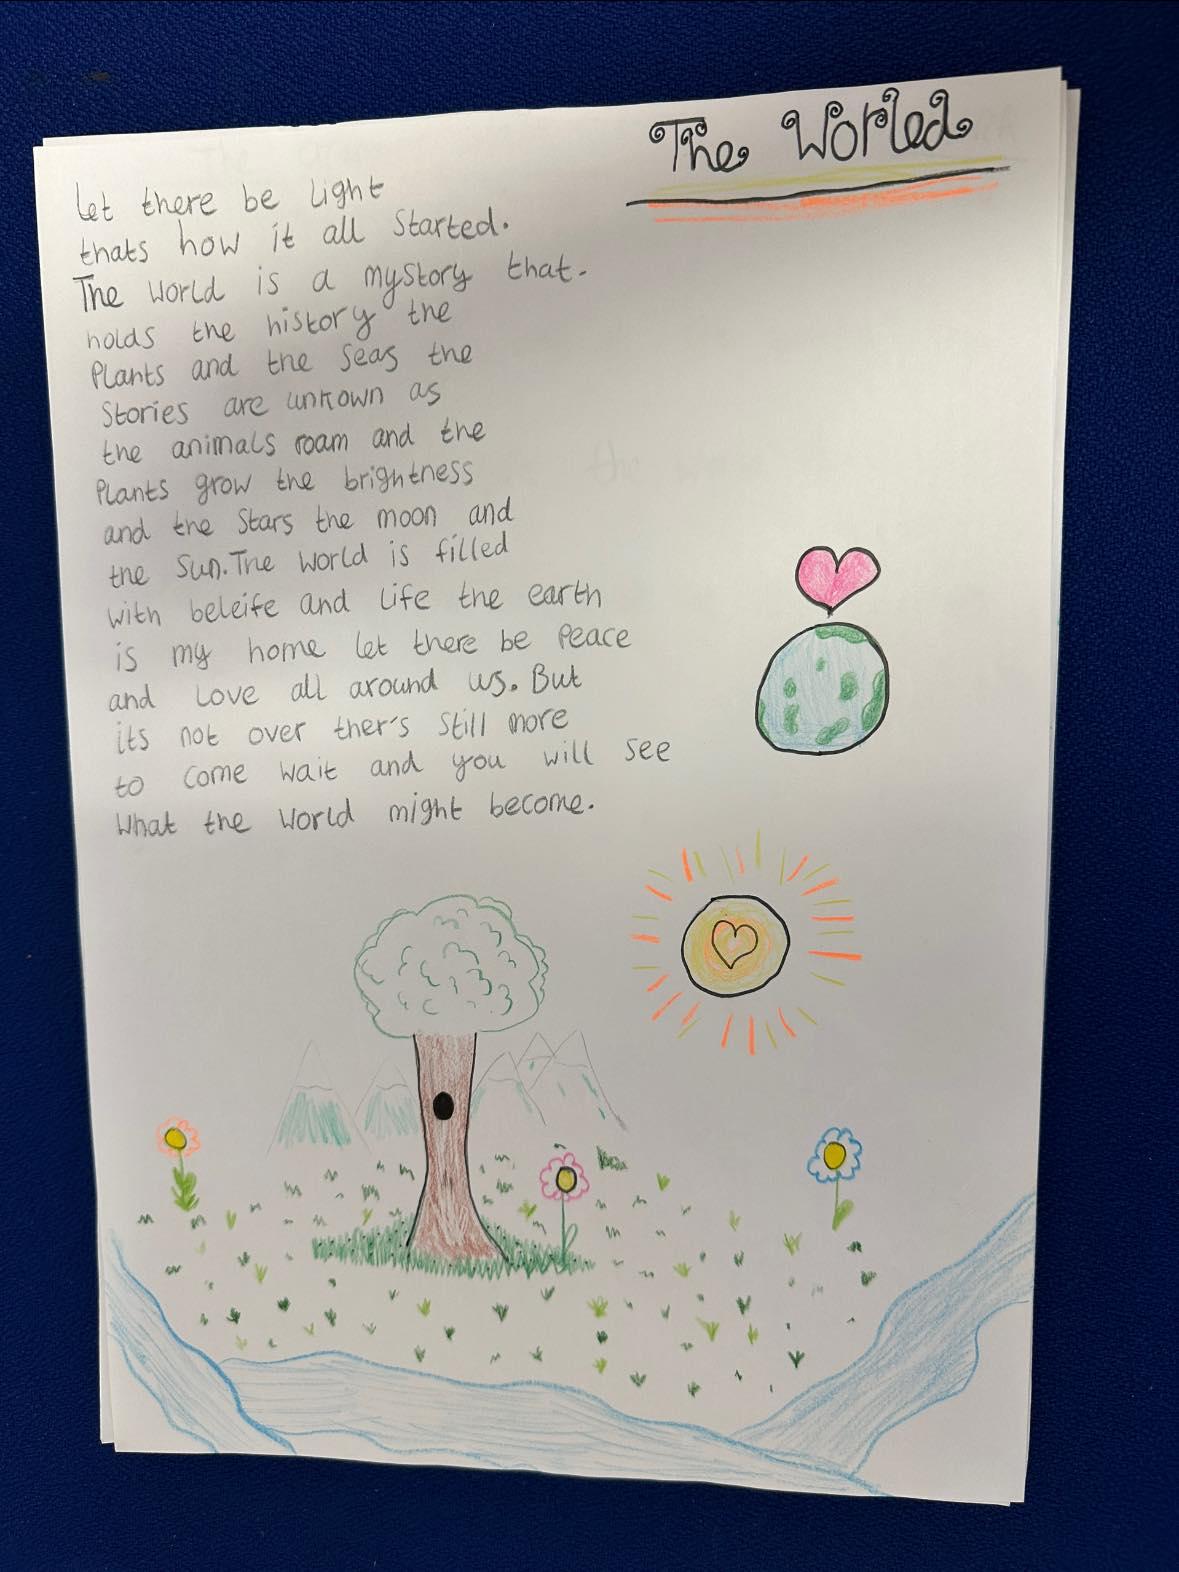 The Worled
Let there be light
thats how it all Started.
The World is a myStory that.
holds the history the
Plants and the Seas the
Stories are unkown as
the animals roam and the
Plants grow the brightness
and the Stars the moon and
the Sun. The World is filled
with beleife and life the earth
is my home let there be Peace
and Love all around us. But
its not over ther's Still more
to Come Wait and you will see
What the World might become.